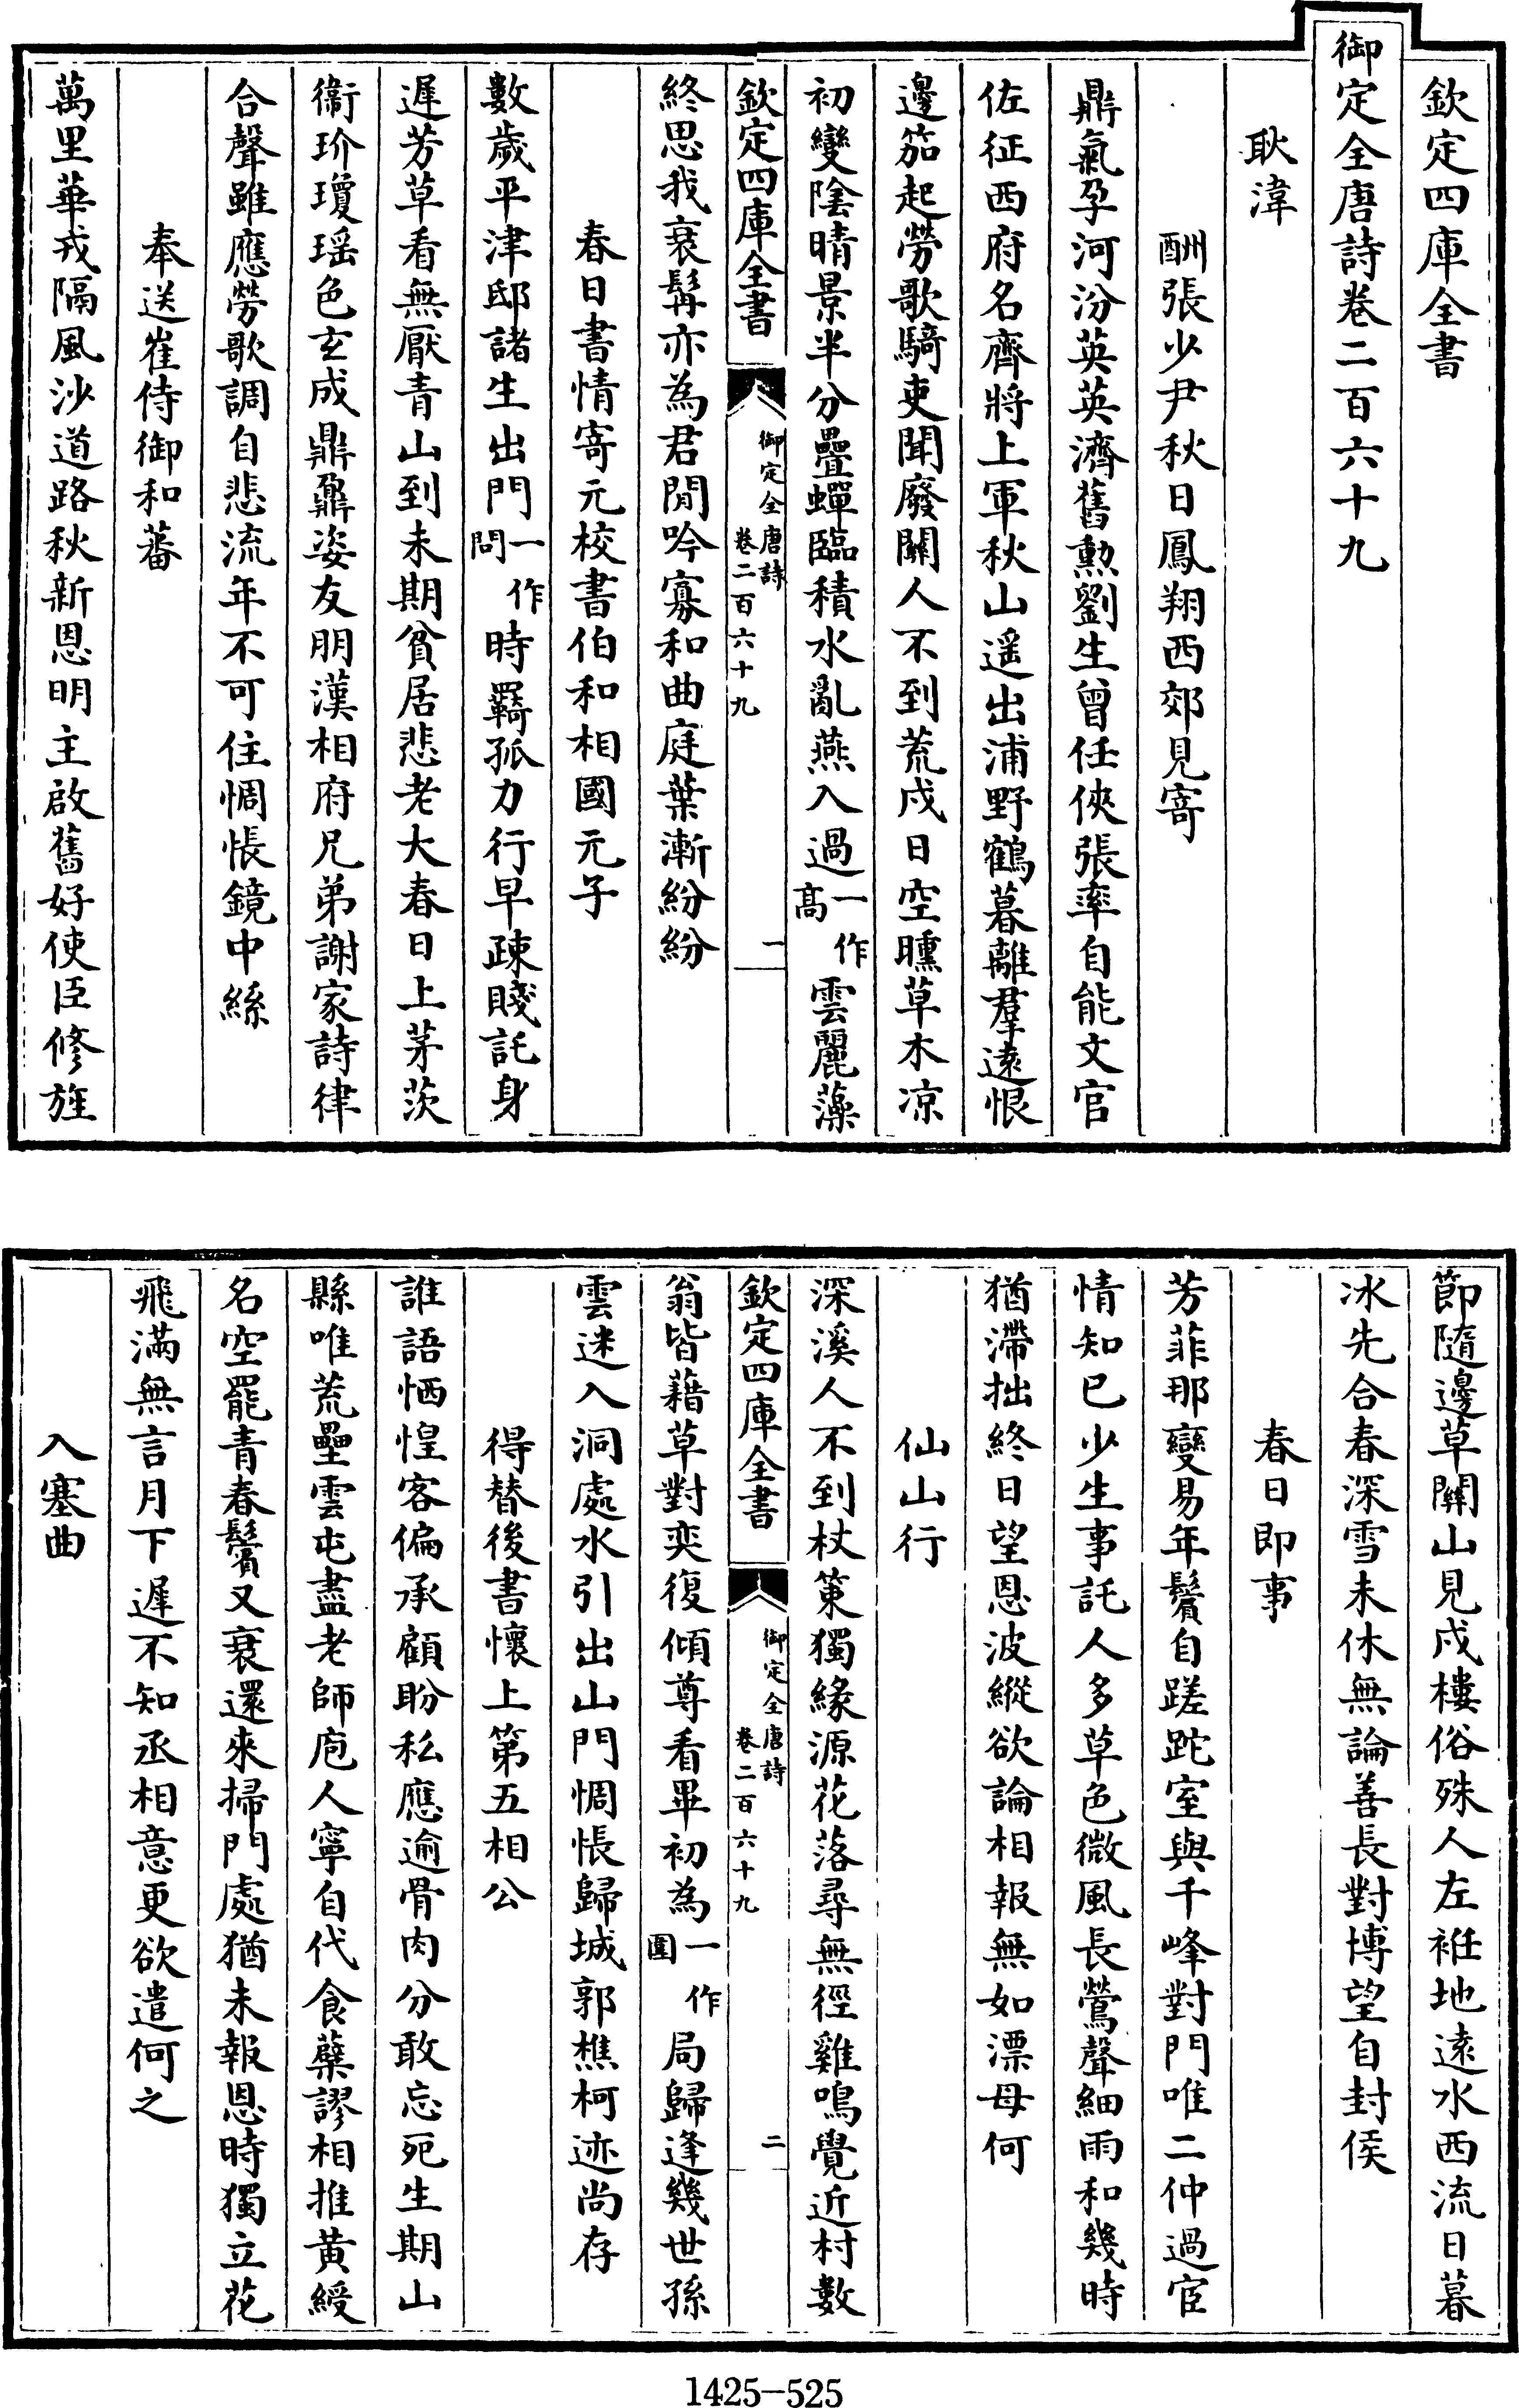 欽定四庫全書
御定全唐詩卷二百六十九
耿湋
酬張少尹秋日鳳翔西郊見寄
鼎氣孕河汾英英濟舊勲劉生曾任俠張率自能文官
佐征西府名齊將上軍秋山遥出浦野鶴暮離羣遠恨
邊笳起勞歌騎吏聞廢關人不到荒戍日空曛草木凉
初變陰晴景半分疊蟬臨積水亂燕入過一作高雲麗藻
欽定四庫全書 御定全唐詩 卷二百六十九 一
終思我衰髯亦為君閒吟寡和曲庭葉漸紛紛
春日書情寄元校書伯和相國元子
數歲平津邸諸生出門一作問時羇孤力行早疎賤託身
遲芳草看無厭青山到未期貧居悲老大春日上茅茨
衞玠瓊瑶色玄成鼎鼐姿友朋漢相府兄弟謝家詩律
合聲雖應勞歌調自悲流年不可住惆悵鏡中絲
奉送崔侍御和蕃
萬里華戎隔風沙道路秋新恩明主啟舊好使臣修旌
節隨邊草關山見戍樓俗殊人左袵地遠水西流日暮
冰先合春深雪未休無論善長對博望自封侯
春日即事
芳菲那變易年鬢自蹉跎室與千峰對門唯二仲過宦
情知已少生事託人多草色微風長鶯聲細雨和幾時
猶滯拙終日望恩波縱欲論相報無如漂母何
仙山行
深溪人不到杖策獨緣源花落尋無徑雞鳴覺近村數
欽定四庫全書 御定全唐詩 卷二百六十九 二
翁皆藉草對奕復傾尊看畢初為一作圍局歸逢幾世孫
雲迷入洞處水引出山門惆悵歸城郭樵柯迹尚存
得替後書懷上第五相公
誰語恓惶客偏承顧盼私應逾骨肉分敢忘死生期山
縣唯荒壘雲屯盡老師庖人寧自代食蘗謬相推黄綬
名空罷青春鬢又衰還來掃門處猶未報恩時獨立花
飛滿無言月下遲不知丞相意更欲遣何之
入塞曲
1425-525